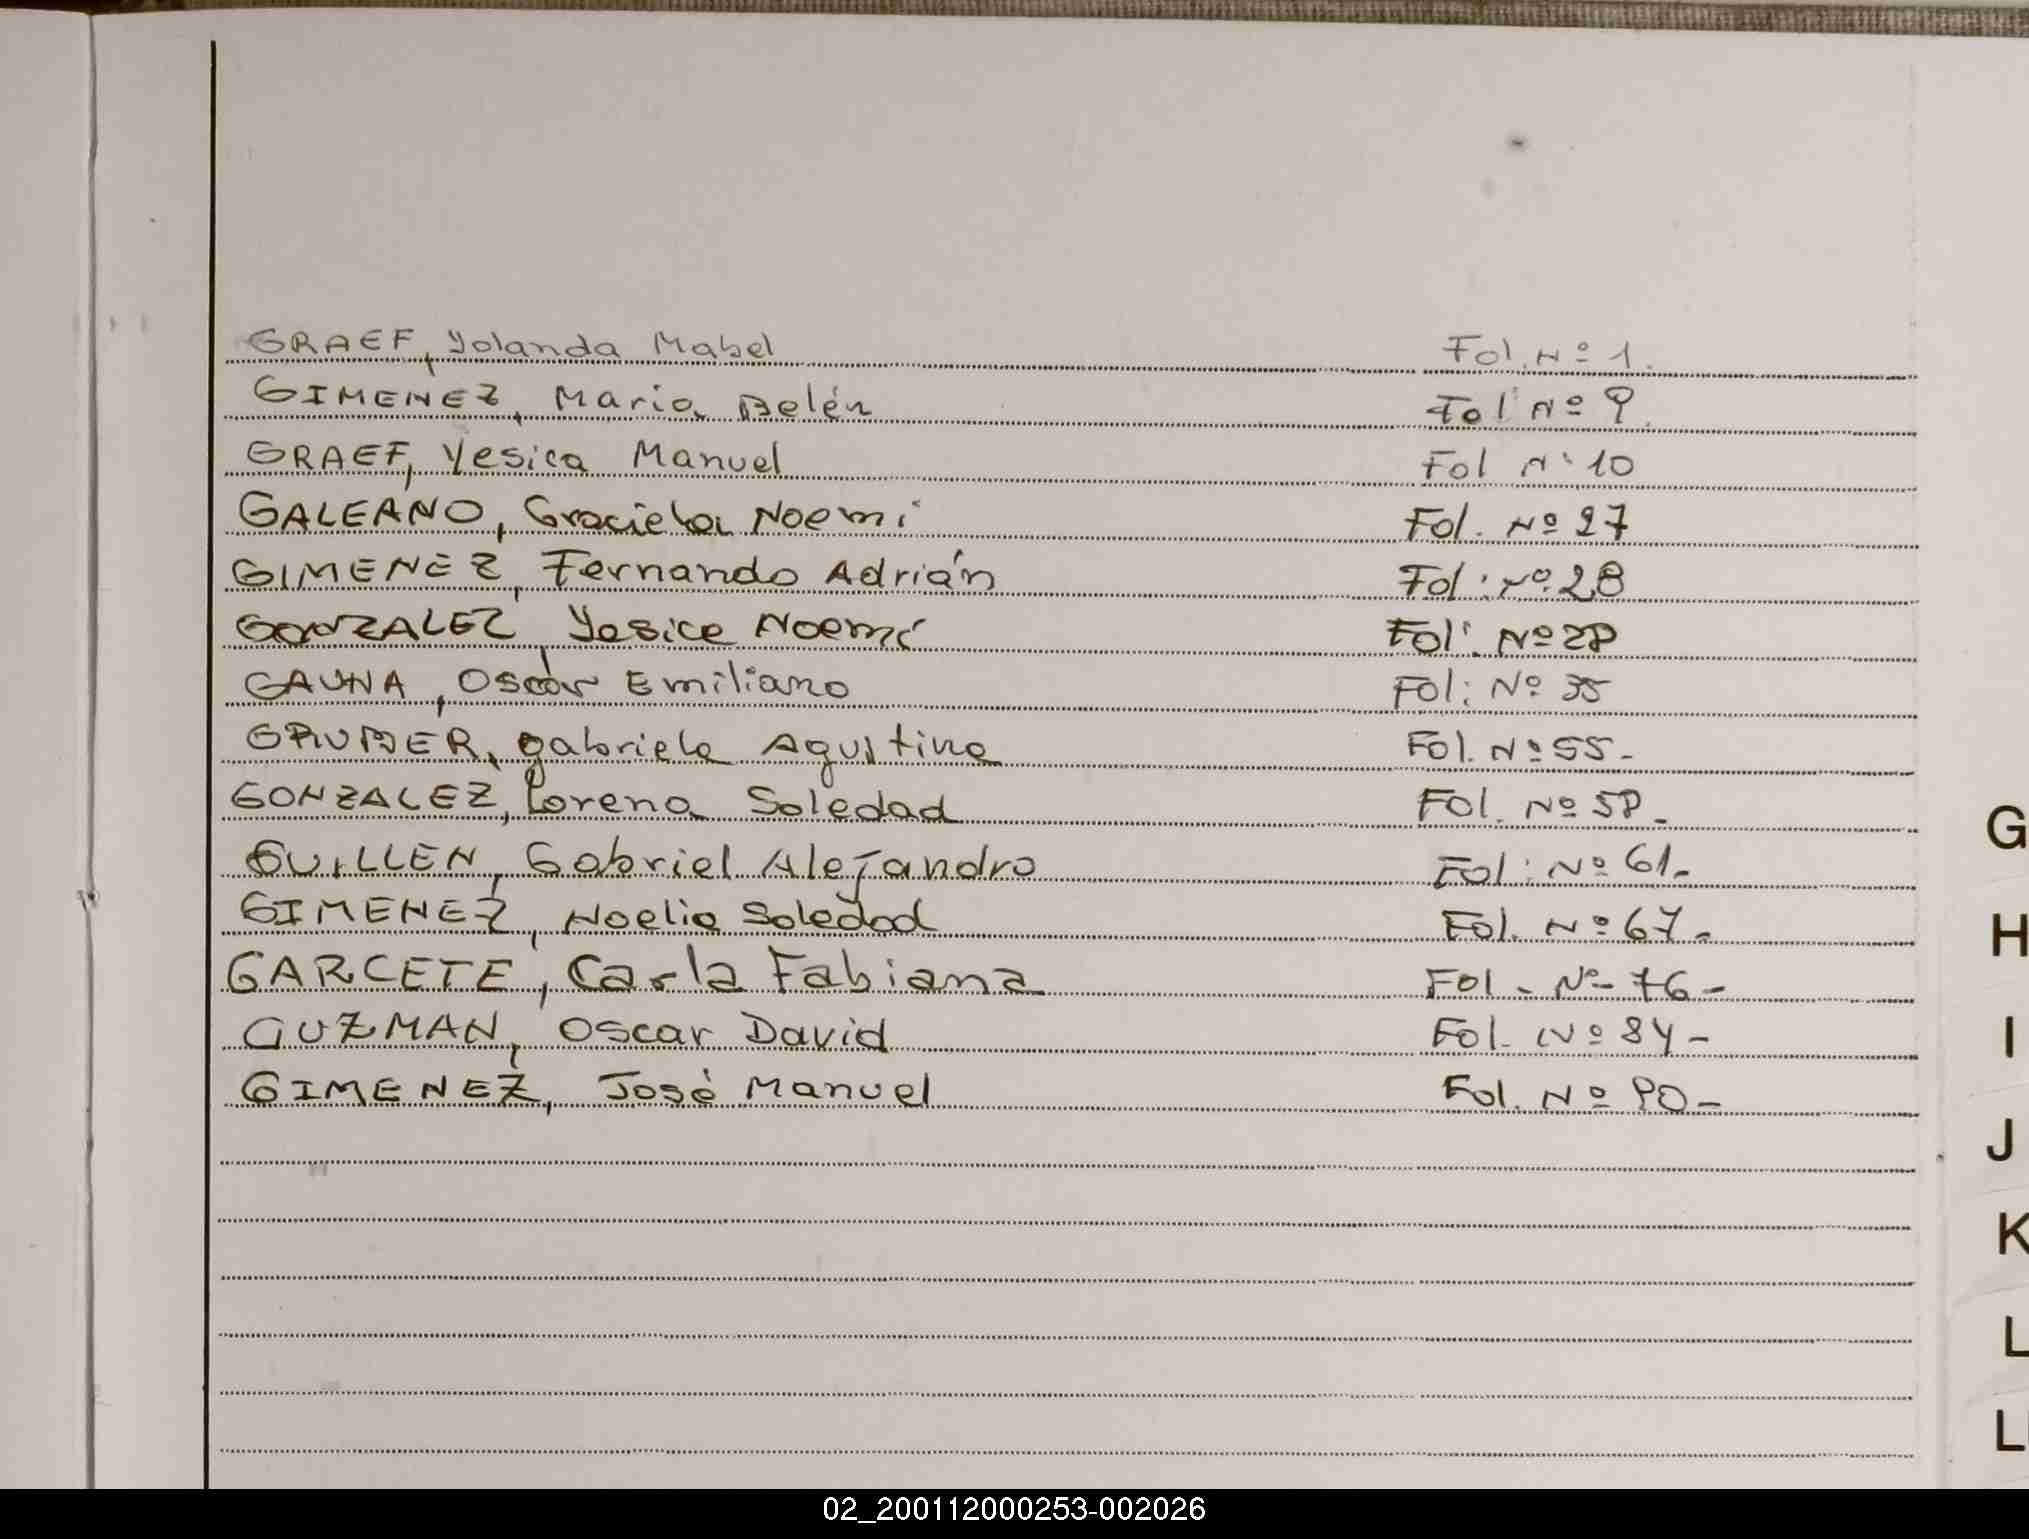 GRAEF, Yolanda Mabel Fol. Nº 1.
GIMENEZ, Maria Belén Fol Nº 9.
GRAEF, Yesica Manuel Fol Nº 10
GALEANO, Graciela Noemi Fol. Nº 27
GIMENEZ, Fernando Adrián Fol: Nº 28
GONZALEZ, Yesica Noemí Fol: Nº 29
GAUNA, Oscar Emiliano Fol: Nº 35
GRUBER, gabriela Agustina Fol. Nº 55-
GONZALEZ, Lorena Soledad Fol. Nº 59-
GUILLEN, Gabriel Alejandro Fol: Nº 61-
GIMENEZ, Noelia Soledad Fol. Nº 67-
GARCETE, Carla Fabiana Fol - Nº 76-
GUZMAN, Oscar David Fol. Nº 84-
GIMENEZ, José Manuel Fol. Nº 90-
G
H
I
J
K
L
LL
02_200112000253-002026